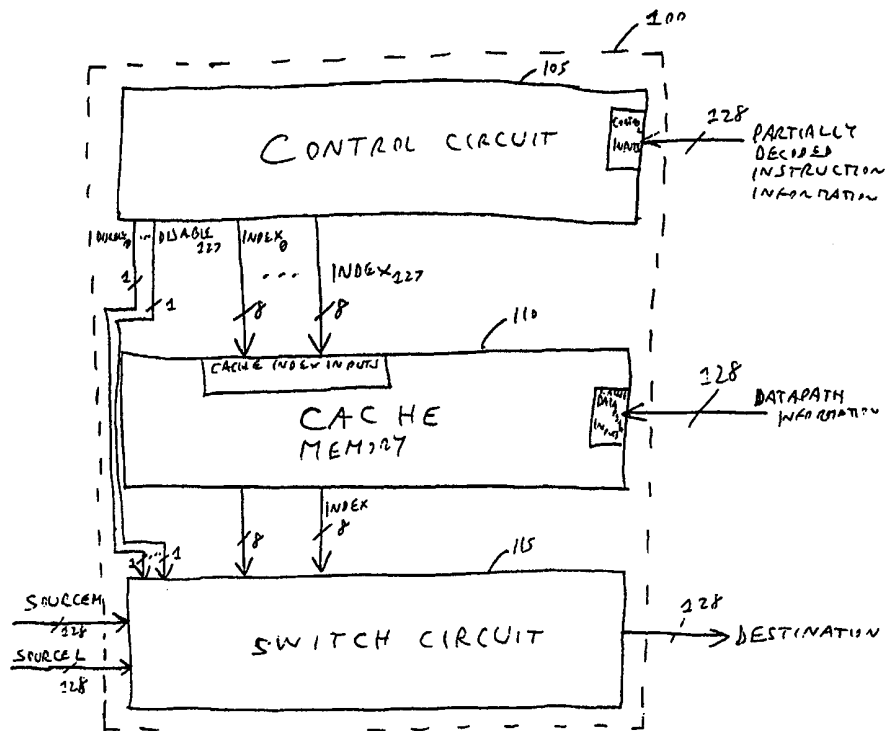 100
105
CONTROL CIRCUIT
CONTROL
INPUTS
128
PARTIALLY
DECODED
INSTRUCTION
INFORMATION
DISABLE0 ... DISABLE127
INDEX0
... INDEX127
1
1
8
8
110
CACHE INDEX INPUTS
CACHE
MEMORY
DATA
INPUTS
128
DATAPATH
INFORMATION
INDEX
8
8
1 ... 1
115
SOURCEM
128
SOURCEL
128
SWITCH CIRCUIT
128
DESTINATION